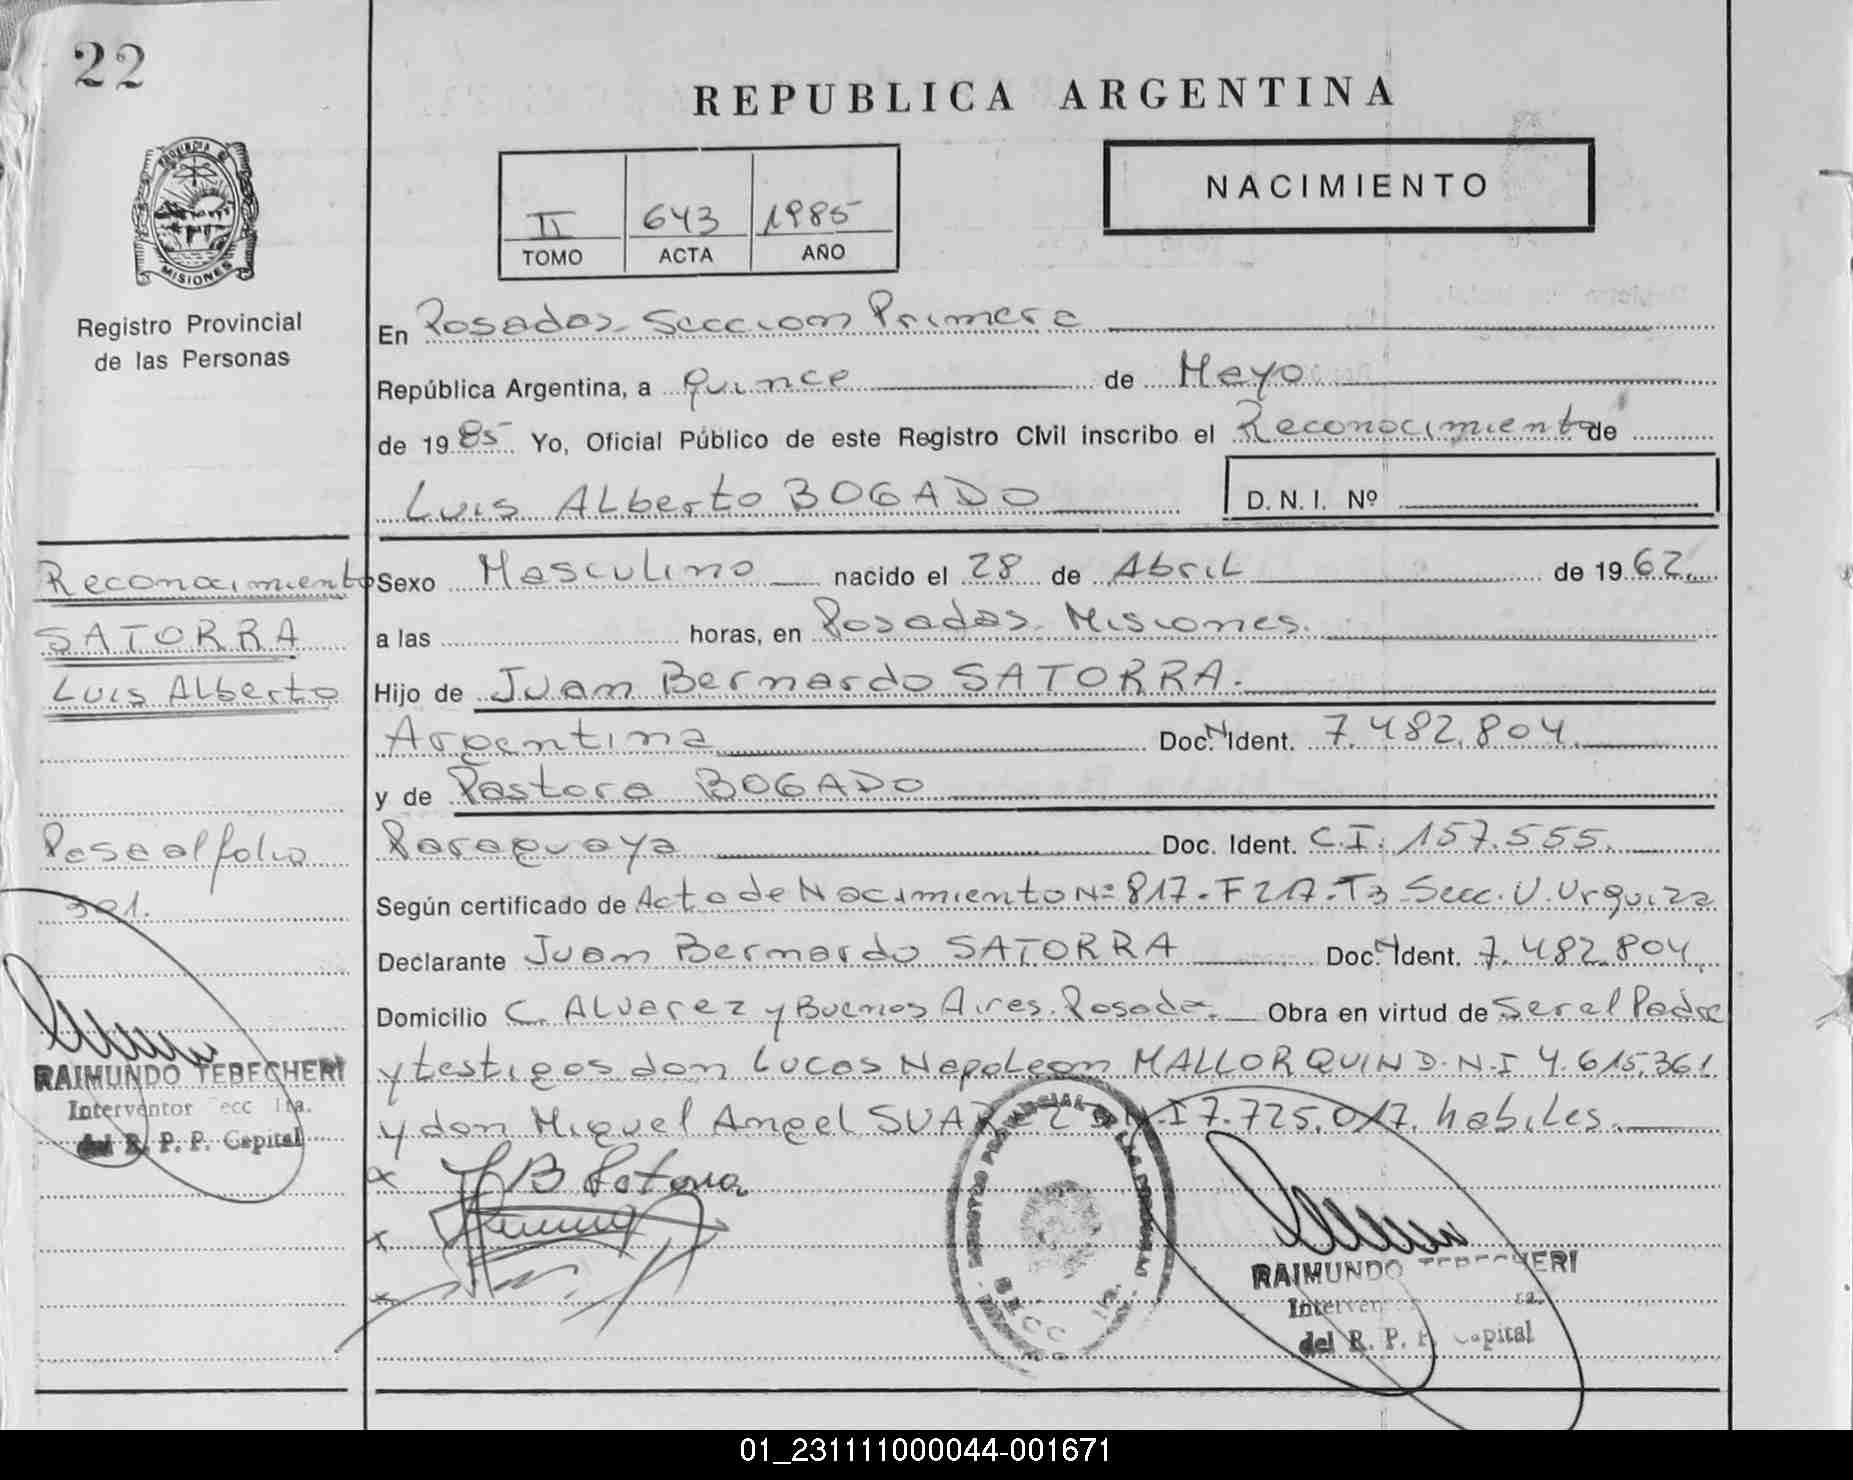 22
REPUBLICA ARGENTINA
PROVINCIA DE MISIONES
Registro Provincial
de las Personas
II 643 1985
TOMO ACTA AÑO
NACIMIENTO
En Posadas Seccion Primera
República Argentina, a quince de Mayo
de 1985 Yo, Oficial Público de este Registro Civil inscribo el Reconocimiento de
Luis Alberto BOGADO D. N. I. Nº
Reconocimiento
SATORRA
Luis Alberto
Pase al folio
301.
RAIMUNDO TEBECHERI
Interventor Secc 1ra.
del R. P. P. Capital
Sexo Masculino nacido el 28 de Abril de 1962.
a las horas, en Posadas Misiones.
Hijo de Juan Bernardo SATORRA.
Argentina Doc. N Ident. 7.482.804.
y de Pastora BOGADO
Paraguaya Doc. Ident. C.I. 157.555.
Según certificado de Acta de Nacimiento Nº 817-F 217-T3-Secc. U. Urquiza
Declarante Juan Bernardo SATORRA Doc. N Ident. 7.482.804.
Domicilio C. Alvarez y Buenos Aires. Posadas. Obra en virtud de Ser el Padre
y testigos don Lucas Napoleon MALLORQUIN D.N.I 4.615.361
y don Miguel Angel SUAREZ D.N.I 7.725.017. habiles.
x J B Satorra
x
x
REGISTRO PROVINCIAL DE LAS PERSONAS
SECC 1ra.
RAIMUNDO TEBECHERI
Interventor Secc 1ra.
del R. P. P. Capital
01_231111000044-001671